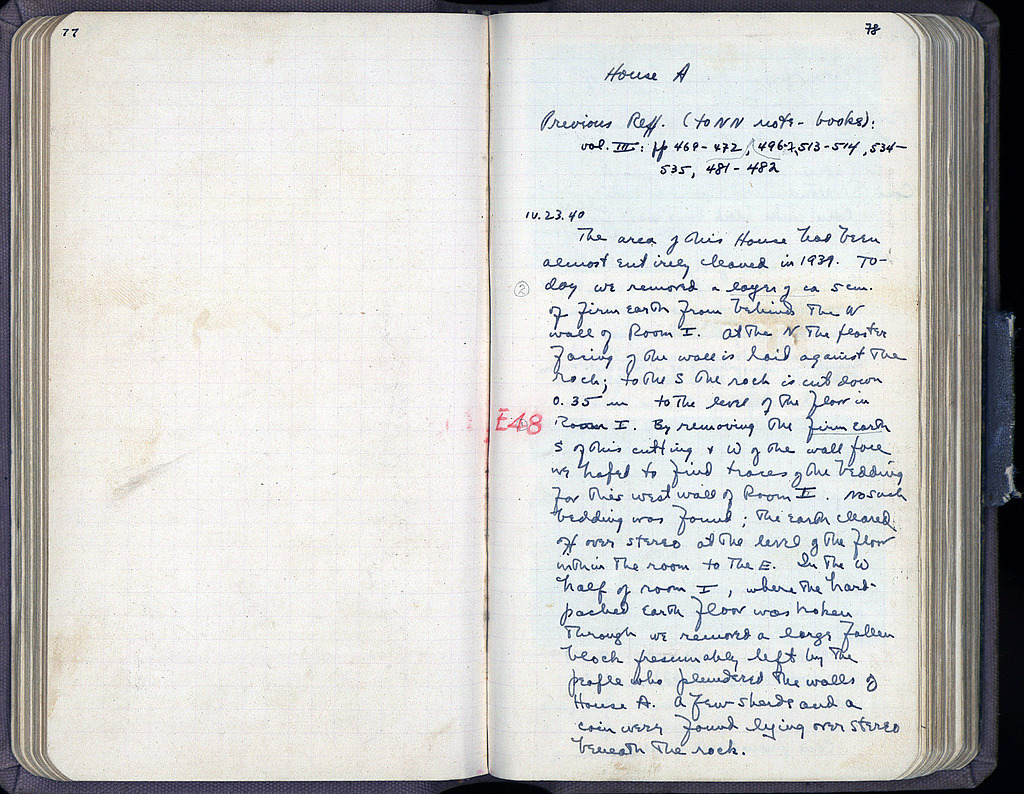 77
78
House A
Previous Reff. (to NN note-books):
vol. III: pp 469-472, 496-7, 513-514, 534-
535, 481-482
IV.23.40
The area of this House had been
almost entirely cleared in 1939. To-
② day we removed a layer of ca 5 cm.
of firm earth from behind the W
wall of Room I. At the N the plaster
facing of the wall is laid against the
rock; to the S the rock is cut down
0.35 m to the level of the floor in
E48 Room I. By removing the firm earth
S of this cutting & W of the wall face
we hoped to find traces of the bedding
for this west wall of Room I. No such
bedding was found; the earth cleared
off over stereo at the level of the floor
within the room to the E. In the W
half of room I, where the hard-
packed earth floor was broken
through we removed a large fallen
block presumably left by the
people who plundered the walls of
House A. A few sherds and a
coin were found lying over stereo
beneath the rock.